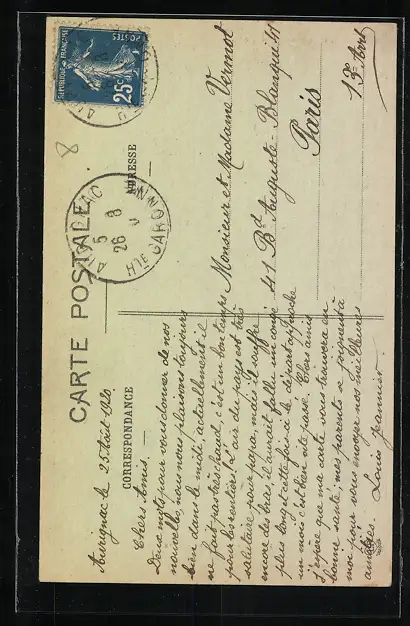 CARTE POSTALE
CORRESPONDANCE
ADRESSE
RÉPUBLIQUE FRANÇAISE
POSTES
25c
8
5 8
26
Hte GARONNE
Aurignac le 25 Août 1920
Chers Amis.
Deux mots pour vous donner de nos
nouvelles, nous nous plaisons toujours
bien dans le midi, actuellement il
ne fait pas très chaud, c'est un bon temps
pour les rentiers! L'air du pays est très
salutaire pour papa, mais il souffre
encore des bras, il aurait fallu un congé
plus long et cette fois-ci le départ approche
un mois c'est bien vite passé. Chers amis
j'espère que ma carte vous trouvera en
bonne santé; mes parents se joignent à
moi pour vous envoyer nos meilleures
amitiés. Louis Jeannier.
Monsieur et Madame Vermot
41 Bd Auguste-Blanqui 41
Paris
13e Arrt